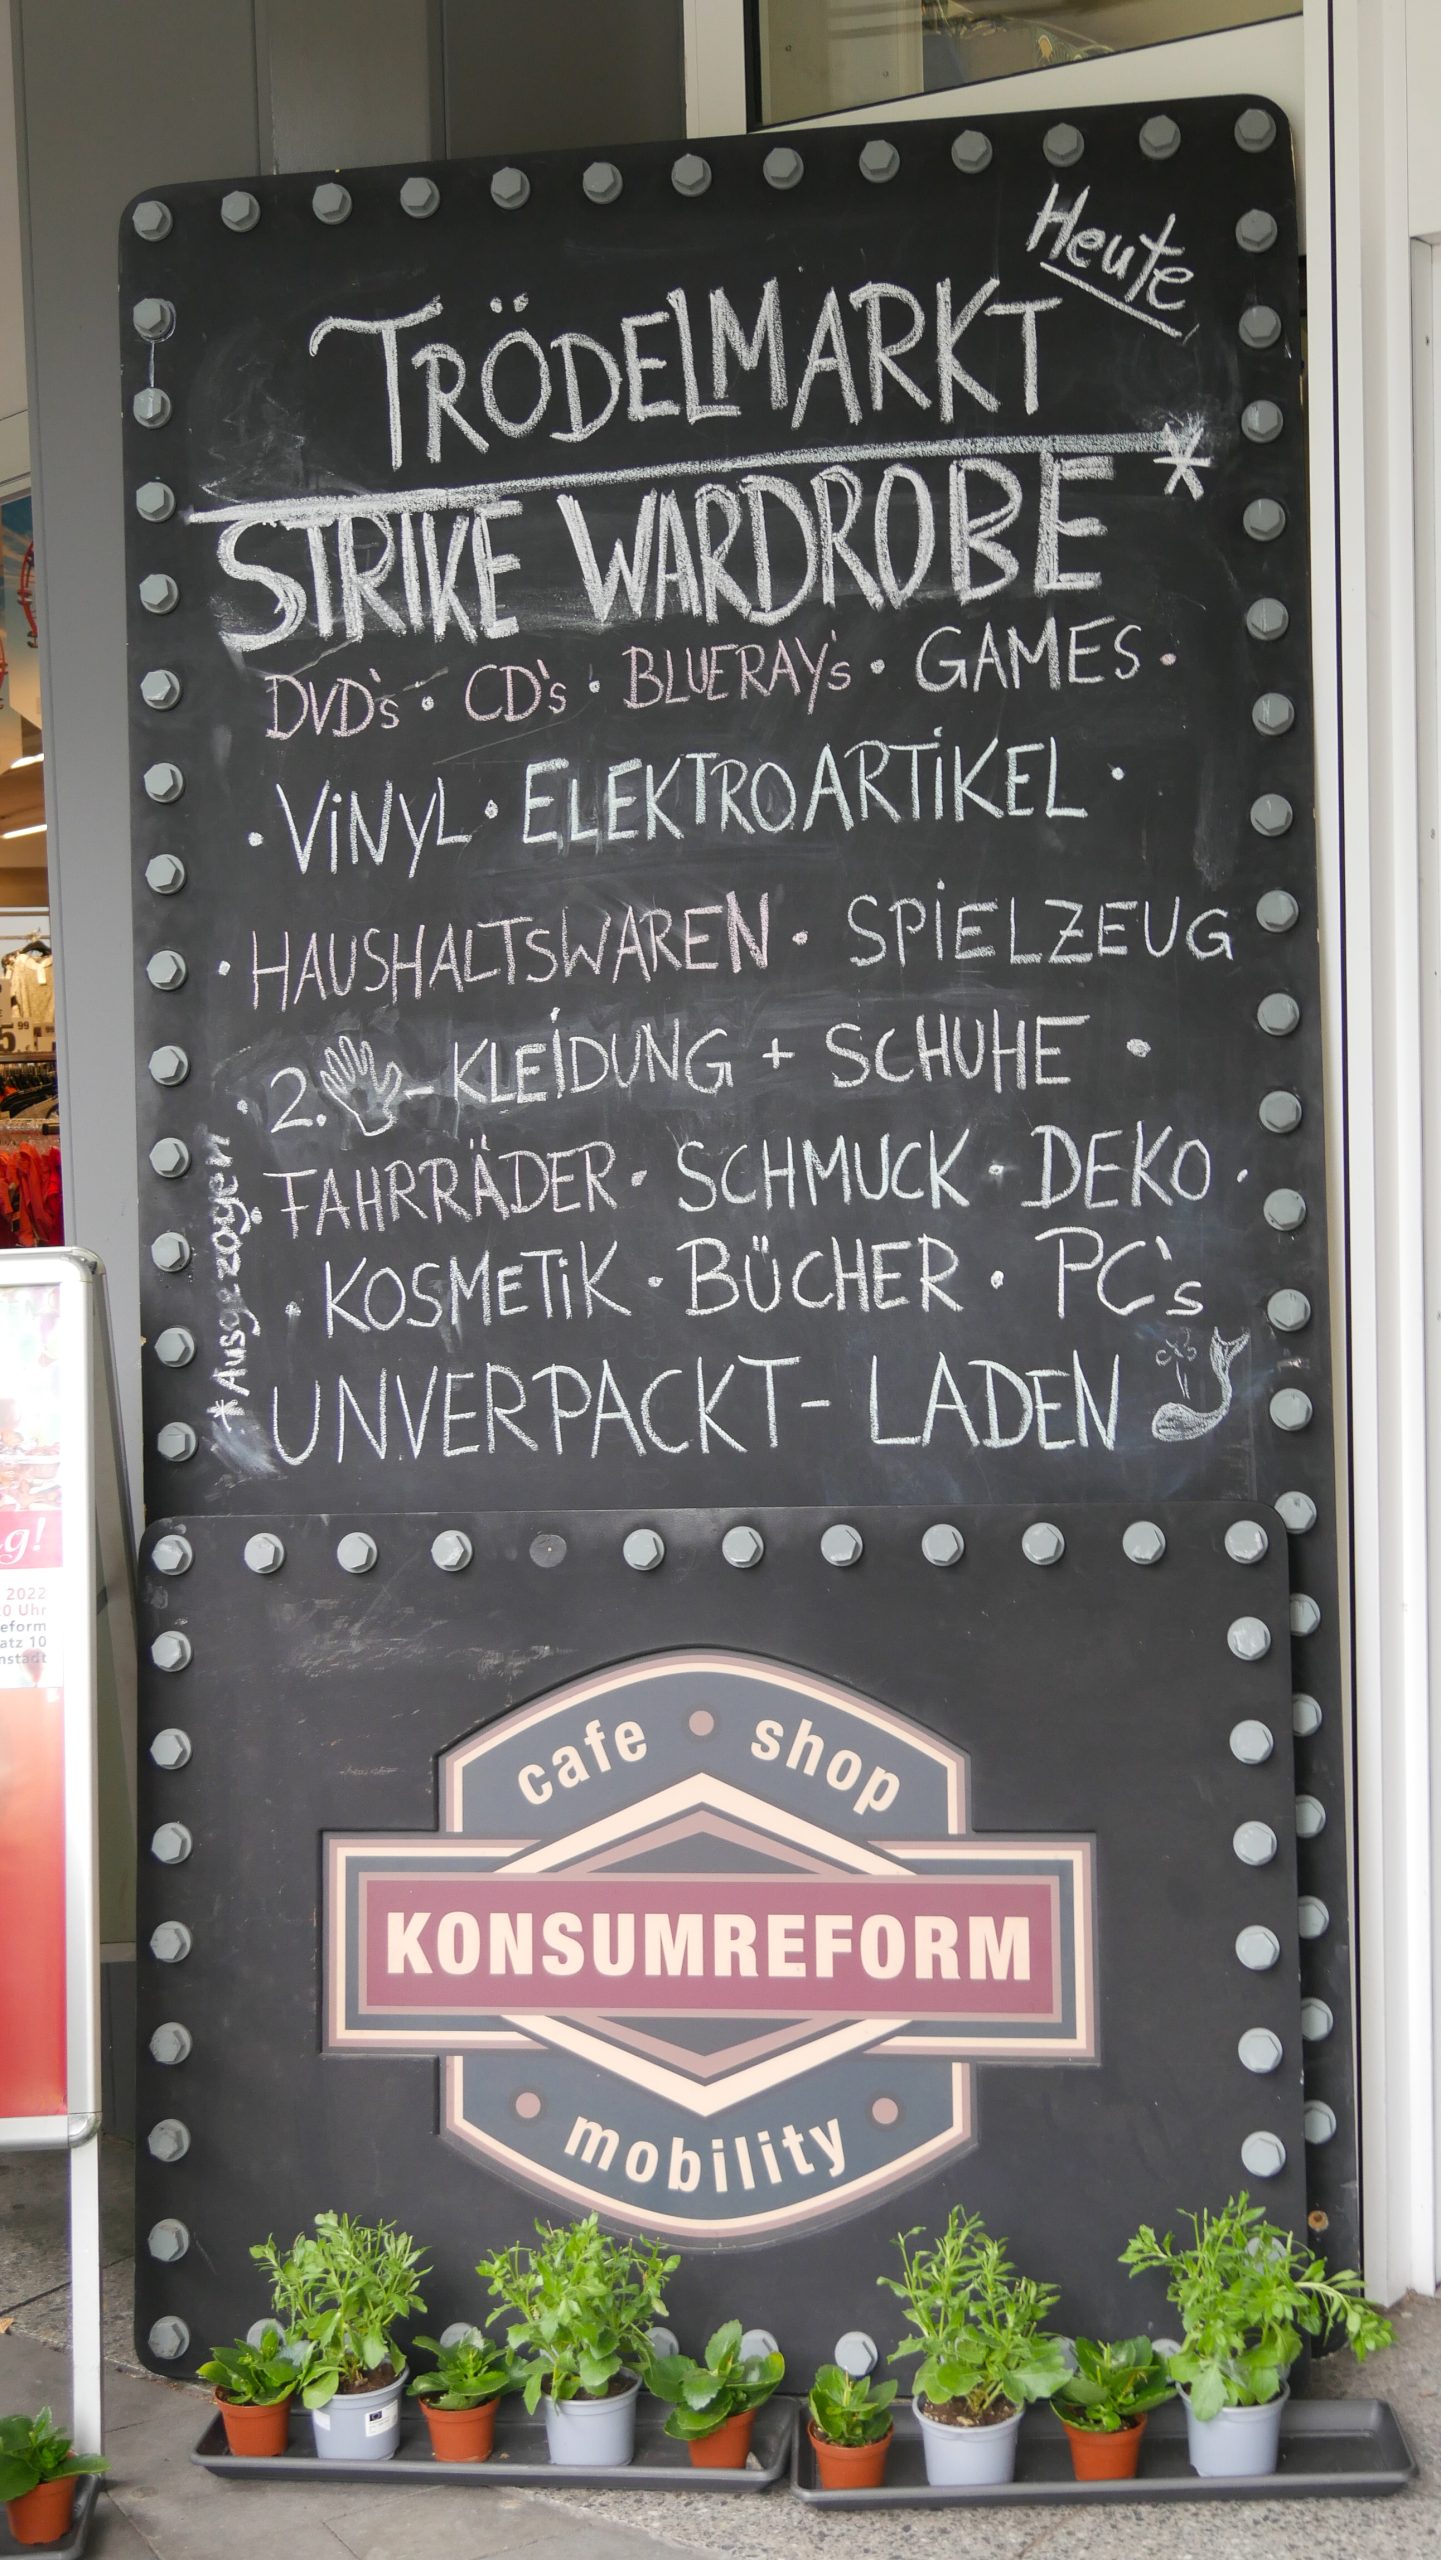 Heute
TRÖDELMARKT
STRIKE WARDROBE*
DVD's · CD's · BLUERAY's · GAMES ·
· ViNYL · ELEKTROARTiKEL ·
· HAUSHALTSWAREN · SPiELZEUG
· 2. -KLEiDUNG + SCHUHE ·
FAHRRÄDER · SCHMUCK · DEKO ·
· KOSMETiK · BÜCHER · PC's
UNVERPACKT-LADEN
*Ausgezogen
cafe · shop
KONSUMREFORM
mobility
g!
2022
0 Uhr
eform
atz 10
nstadt
5 99